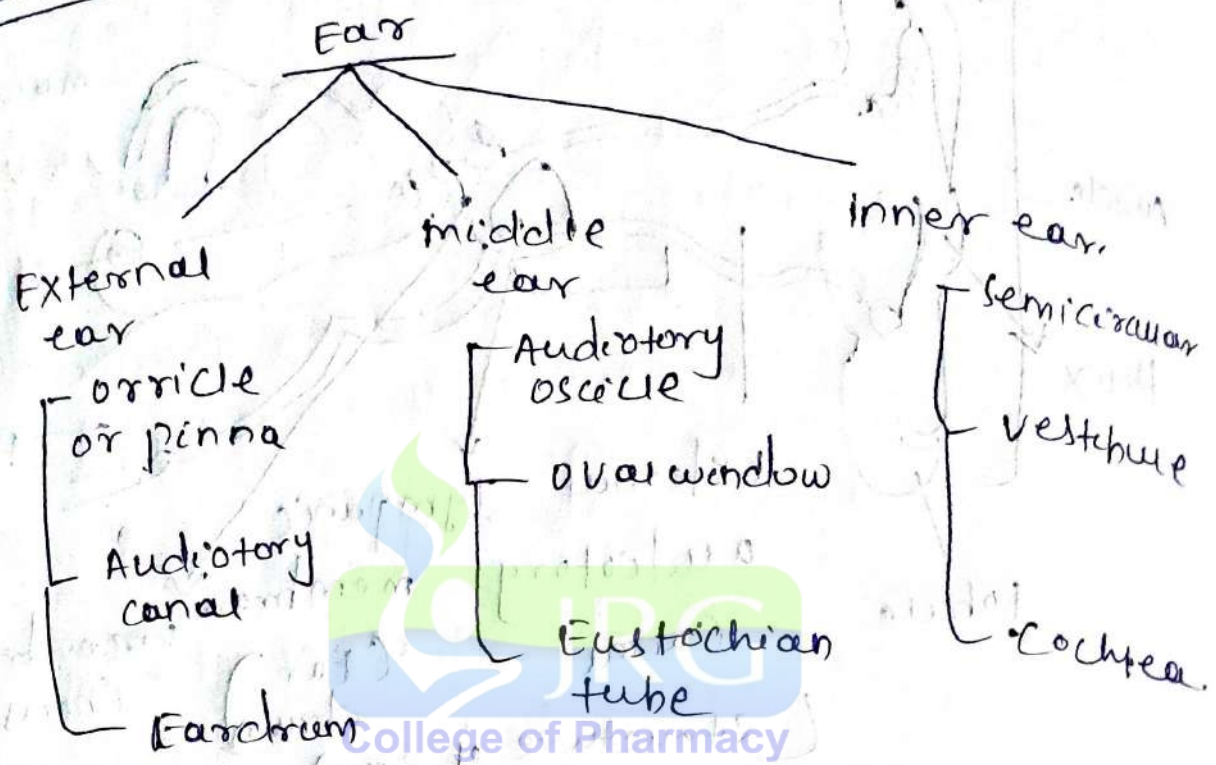 Ear
External
ear
orricle
or pinna
Audiotory
canal
Eardrum
middle
ear
Audiotory
oscille
oval window
Eustochian
tube
inner ear.
Semicircular
vestibule
Cochlea.
JRG
College of Pharmacy